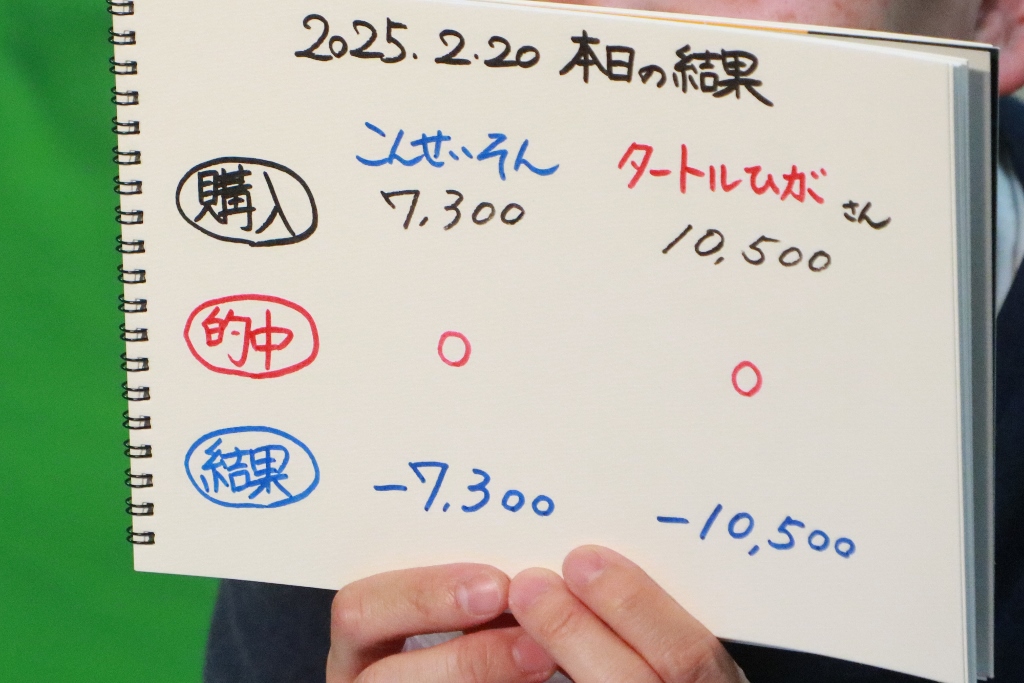 2025.2.20 本日の結果
こんせいそん タートルひが さん
購入 7,300 10,500
的中 0 0
結果 -7,300 -10,500